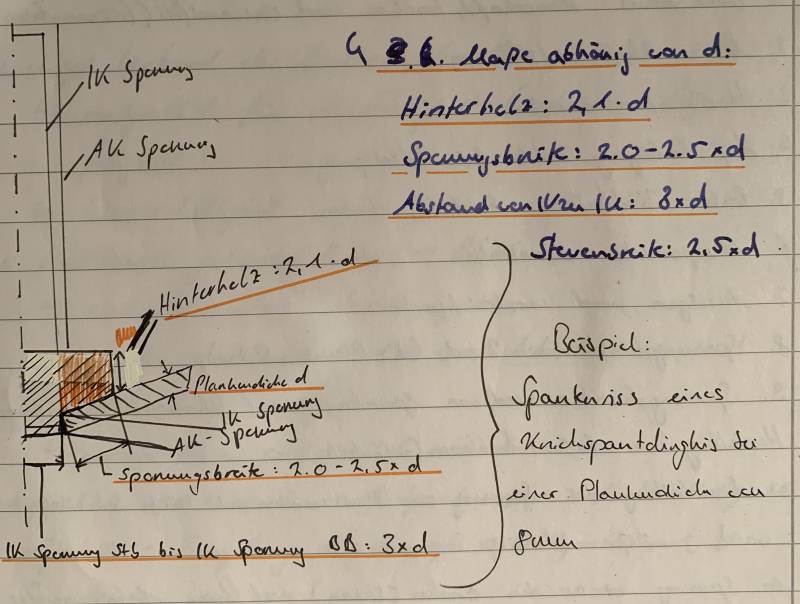 Maße abhänig von d:
Hinterholz: 2,1·d
Sponungsbreite: 2.0-2.5×d
Abstand von IK zu IK: 3×d
Stevenbreite: 2,5×d
IK Sponung
AK Sponung
Hinterholz: 2,1·d
Plankendicke d
IK Sponung
AK-Sponung
Sponungsbreite: 2.0-2,5×d
IK Sponung Stb bis IK Sponung BB: 3×d
Beispiel:
eines
Knickspantdinghis bei
einer Plankendicke von
8mm